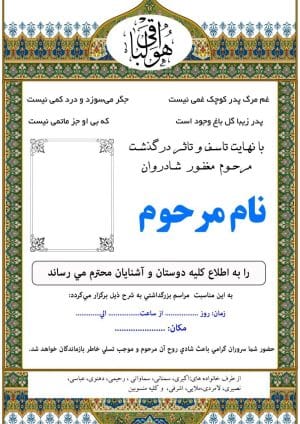 هو الباقی
غم مرگ پدر کوچک غمی نیست جگر می‌سوزد و درد کمی نیست
پدر زیبا گل باغ وجود است که بی او جز ماتمی نیست
با نهایت تاسف و تاثر درگذشت
مرحوم مغفور شادروان
نام مرحوم
را به اطلاع کلیه دوستان و آشنایان محترم می رساند
به این مناسبت مراسم بزرگداشتی به شرح ذیل برگزار می‌گردد:
زمان: روز ............... از ساعت............ الی............
مکان: ........................
حضور شما سروران گرامی باعث شادی روح آن مرحوم و موجب تسلی خاطر بازماندگان خواهد شد.
از طرف خانواده های:اکبری، سمنانی، سماواتی ، رحیمی، دهنوی، عباسی،
نصیری، لامردی،ملایی، اشرفی، و کلیه منسوبین